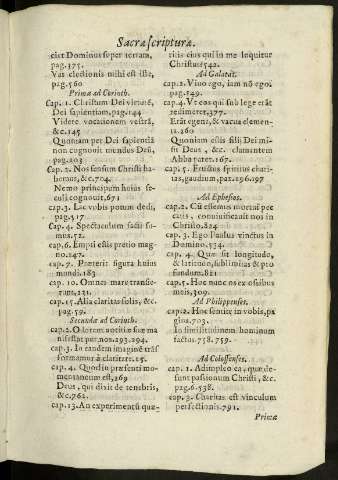 Sacræ scripturæ.
ciat Dominus super terram,
pag.375.
Vas electionis mihi est iste,
pag.560
Primæ ad Corinth.
cap. 1. Christum Dei virtutē,
Dei sapientiam, pag.144
Videte vocationem vestrā,
&c.145
Quoniam per Dei sapientiā
non cognouit mundus Deū,
pag.203
cap. 2. Nos sensum Christi ha-
bemus, &c.704.
Nemo principum huius se-
culi cognouit, 671
cap.3. Lac vobis potum dedi,
pag.317
cap. 4. Spectaculum facti su-
mus.52.
cap.6. Empti estis pretio mag-
no.147.
cap. 7. Præterit figura huius
mundi.183
cap. 10. Omnes mare transie-
runt,131.
cap. 15. Alia claritas solis, &c.
pag.59.
Secundæ ad Corinth.
cap.2. Odorem notitiæ suæ ma
nifestat per nos.293.294.
cap.3. In eandem imaginē trās
formamur à claritate.15.
cap. 4. Quod in præsenti mo-
mentaneum est, 269
Deus, qui dixit de tenebris,
&c.762.
cap. 13. An experimentū quæ-
ritis eius qui in me loquitur
Christus?542.
Ad Galatas.
cap.2. Viuo ego, iam nō ego.
pag.549.
cap.4. Vt eos qui sub lege erāt
redimeret.377.
Erāt egena, & vacua elemen-
ta.260
Quoniam estis filij Dei mi-
sit Deus, &c. clamantem
Abba pater.167.
cap. 5. Fructus spiritus chari-
tas, gaudium, pax.196.197
Ad Ephesios.
cap.2. Cū essemus mortui pec
catis, conuiuificauit nos in
Christo.824
cap. 3. Ego Paulus vinctus in
Domino.534.
cap. 4. Quæ sit longitudo,
& latitudo, sublimitas & pro
fundum.821
cap.5. Hoc nunc os ex ossibus
meis,309.
Ad Philippenses.
cap.2. Hoc sentite in vobis, pa
gina,703.
In similitudinem hominum
factus.758.759.
Ad Colossenses.
cap. 1. Adimpleo ea, quæ de-
sunt passionum Christi, &c.
pag.6.538.
cap. 3. Charitas est vinculum
perfectionis.791.
Primæ